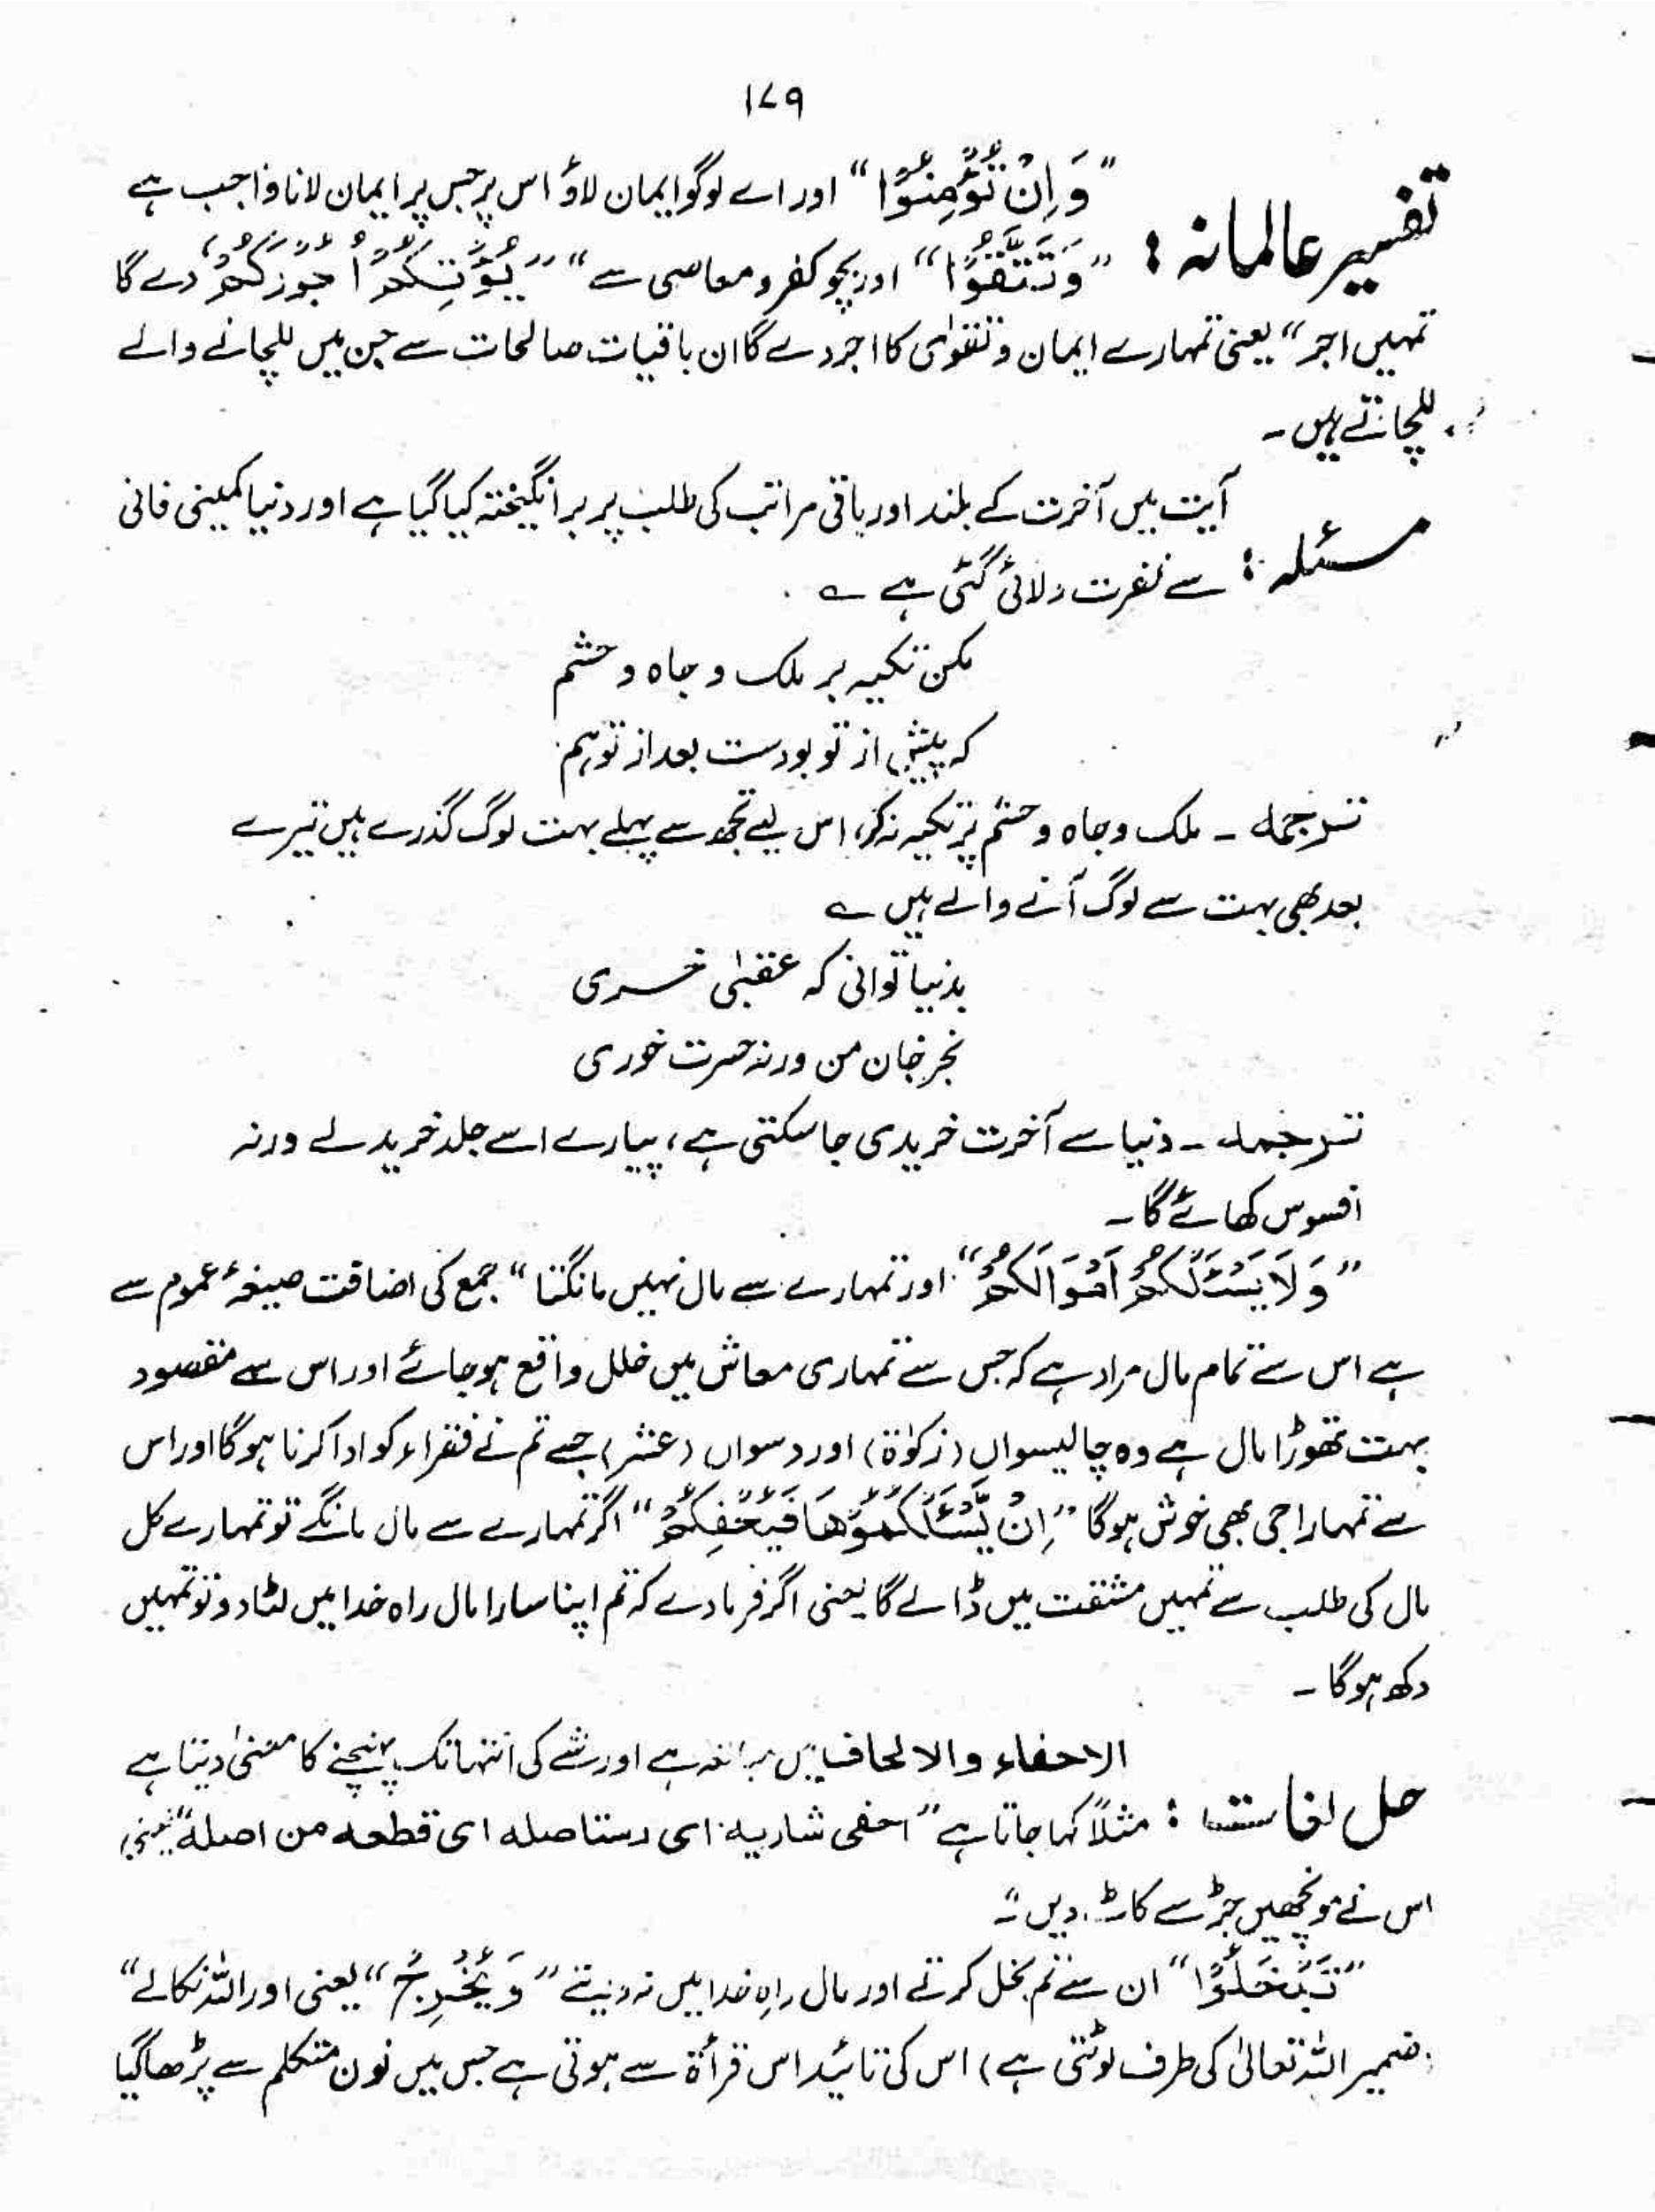 ۱۷۹
تفسیر عالمانہ : "وَاِنْ تُؤْمِنُوْا" اور اے لوگو ایمان لاؤ اس پر جس پر ایمان لانا واجب ہے
"وَتَتَّقُوْا" اور بچو کفر و معاصی سے" "یُؤْتِکُمْ اُجُوْرَکُمْ" دے گا
تمہیں اجر" یعنی تمہارے ایمان و تقوٰی کا اجر دے گا ان باقیات صالحات سے جن میں للچانے والے
للچاتے ہیں ۔
مسئلہ : آیت میں آخرت کے بلند اور باقی مراتب کی طلب پر برانگیختہ کیا گیا ہے اور دنیا کمینی فانی
سے نفرت دلائی گئی ہے ؎
مکن تکیہ بر ملک و جاہ و حشم
کہ پیش از تو بودست بعد از تو ہم
ترجمہ ۔ ملک و جاہ و حشم پر تکیہ نہ کر، اس لیے تجھ سے پہلے بہت لوگ گذرے ہیں تیرے
بعد بھی بہت سے لوگ آنے والے ہیں ؎
بدنیا توانی کہ عقبٰی خری
بخر جان من ورنہ حسرت خوری
ترجمہ ۔ دنیا سے آخرت خریدی جا سکتی ہے، پیارے اسے جلد خرید لے ورنہ
افسوس کھائے گا ۔
"وَلَا یَسْئَلْکُمْ اَمْوَالَکُمْ" اور تمہارے سے مال نہیں مانگتا" جمع کی اضافت صیغۂ عموم سے
ہے اس سے تمام مال مراد ہے کہ جس سے تمہاری معاش میں خلل واقع ہو جائے اور اس سے مقصود
بہت تھوڑا مال ہے وہ چالیسواں (زکوٰۃ) اور دسواں (عشر) جسے تم نے فقراء کو ادا کرنا ہوگا اور اس
سے تمہارا جی بھی خوش ہوگا "اِنْ یَّسْئَلْکُمُوْهَا فَیُحْفِکُمْ" اگر تمہارے سے مال مانگے تو تمہارے کل
مال کی طلب سے تمہیں مشقت میں ڈالے گا یعنی اگر فرمادے کہ تم اپنا سارا مال راہ خدا میں لٹا دو تو تمہیں
دکھ ہوگا ۔
حل لغات : الاحفاء والالحاف میں مبالغہ ہے اور شے کی انتہا تک پہنچنے کا معنٰی دیتا ہے
مثلاً کہا جاتا ہے "احفی شاربہ ای دستاصلہ ای قطعہ من اصلہ" یعنی
اس نے مونچھیں جڑ سے کاٹ دیں"۔
"تَبْخَلُوْا" ان سے تم بخل کرتے اور مال راہِ خدا میں نہ دیتے "وَیُخْرِجُ" یعنی اور اللہ نکالے"
(ضمیر اللہ تعالیٰ کی طرف لوٹتی ہے) اس کی تائید اس قرأۃ سے ہوتی ہے جس میں نون متکلم سے پڑھا گیا